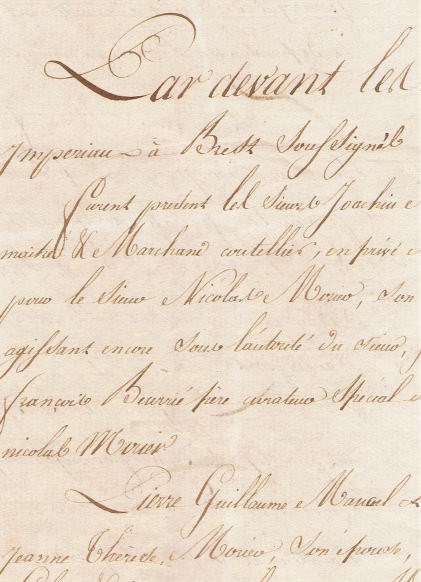 Par devant les
Imperiaux à Brest Soussignés
furent présent les Sieurs Joachim
& Marchand coutellier, en privé
pour le Sieur Nicolas Morier, son
agissant encore sous l'autorité du Sieur,
françois Beurrié père curateur Spécial
nicolas Morier
Pierre Guillaume Manuel
Jeanne Thérèse Morier, Son épouse,